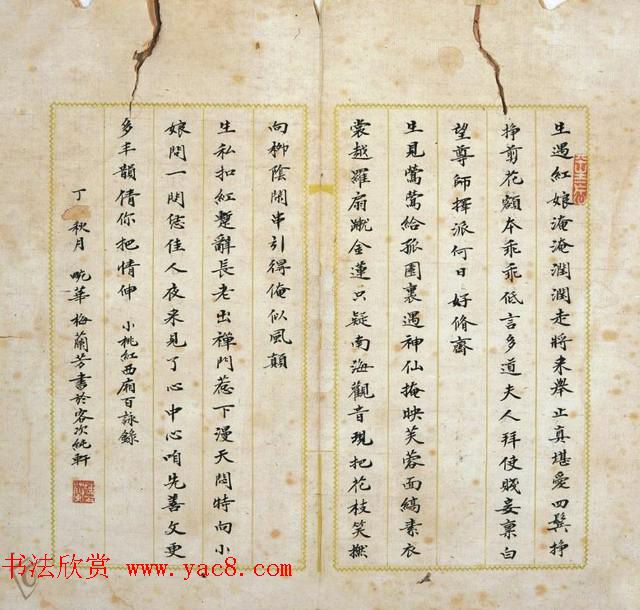 生遇紅娘淹淹潤潤走將來舉止真堪愛四鬢挣
挣剪花額本乖乖低言多道夫人拜使賤妾稟白
望尊師揮派何日好脩齋
生見鶯鶯給孤園裏遇神仙掩映芙蓉面縞素衣
裳越羅扇蹴金蓮只疑南海觀音現把花枝笑撚
向柳陰閒串引得俺似風顛
生私扣紅蹔辭長老出禪門惹下漫天悶特向小
娘問一問恁佳人夜來見了心中心咱先善文更
多丰韻倩你把情伸 小桃紅西廂百詠錄
丁 秋月 畹華梅蘭芳書於客次純軒
书法欣赏 www.yac8.com